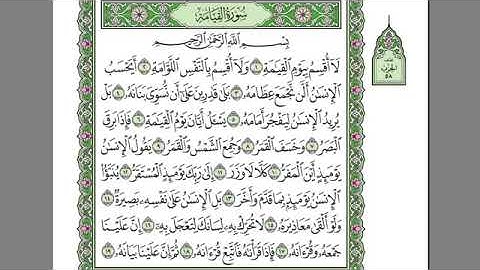 سُورَةُ القِيَامَةِ
بِسْمِ ٱللَّهِ ٱلرَّحْمَٰنِ ٱلرَّحِيمِ
لَآ أُقْسِمُ بِيَوْمِ ٱلْقِيَٰمَةِ ١ وَلَآ أُقْسِمُ بِٱلنَّفْسِ ٱللَّوَّامَةِ ٢ أَيَحْسَبُ
ٱلْإِنسَٰنُ أَلَّن نَّجْمَعَ عِظَامَهُۥ ٣ بَلَىٰ قَٰدِرِينَ عَلَىٰٓ أَن نُّسَوِّىَ بَنَانَهُۥ ٤ بَلْ
يُرِيدُ ٱلْإِنسَٰنُ لِيَفْجُرَ أَمَامَهُۥ ٥ يَسْـَٔلُ أَيَّانَ يَوْمُ ٱلْقِيَٰمَةِ ٦ فَإِذَا بَرِقَ
ٱلْبَصَرُ ٧ وَخَسَفَ ٱلْقَمَرُ ٨ وَجُمِعَ ٱلشَّمْسُ وَٱلْقَمَرُ ٩ يَقُولُ ٱلْإِنسَٰنُ
يَوْمَئِذٍ أَيْنَ ٱلْمَفَرُّ ١٠ كَلَّا لَا وَزَرَ ١١ إِلَىٰ رَبِّكَ يَوْمَئِذٍ ٱلْمُسْتَقَرُّ ١٢ يُنَبَّؤُا۟
ٱلْإِنسَٰنُ يَوْمَئِذٍۭ بِمَا قَدَّمَ وَأَخَّرَ ١٣ بَلِ ٱلْإِنسَٰنُ عَلَىٰ نَفْسِهِۦ بَصِيرَةٌ ١٤
وَلَوْ أَلْقَىٰ مَعَاذِيرَهُۥ ١٥ لَا تُحَرِّكْ بِهِۦ لِسَانَكَ لِتَعْجَلَ بِهِۦٓ ١٦ إِنَّ عَلَيْنَا
جَمْعَهُۥ وَقُرْءَانَهُۥ ١٧ فَإِذَا قَرَأْنَٰهُ فَٱتَّبِعْ قُرْءَانَهُۥ ١٨ ثُمَّ إِنَّ عَلَيْنَا بَيَانَهُۥ ١٩
الحزب
٥٨